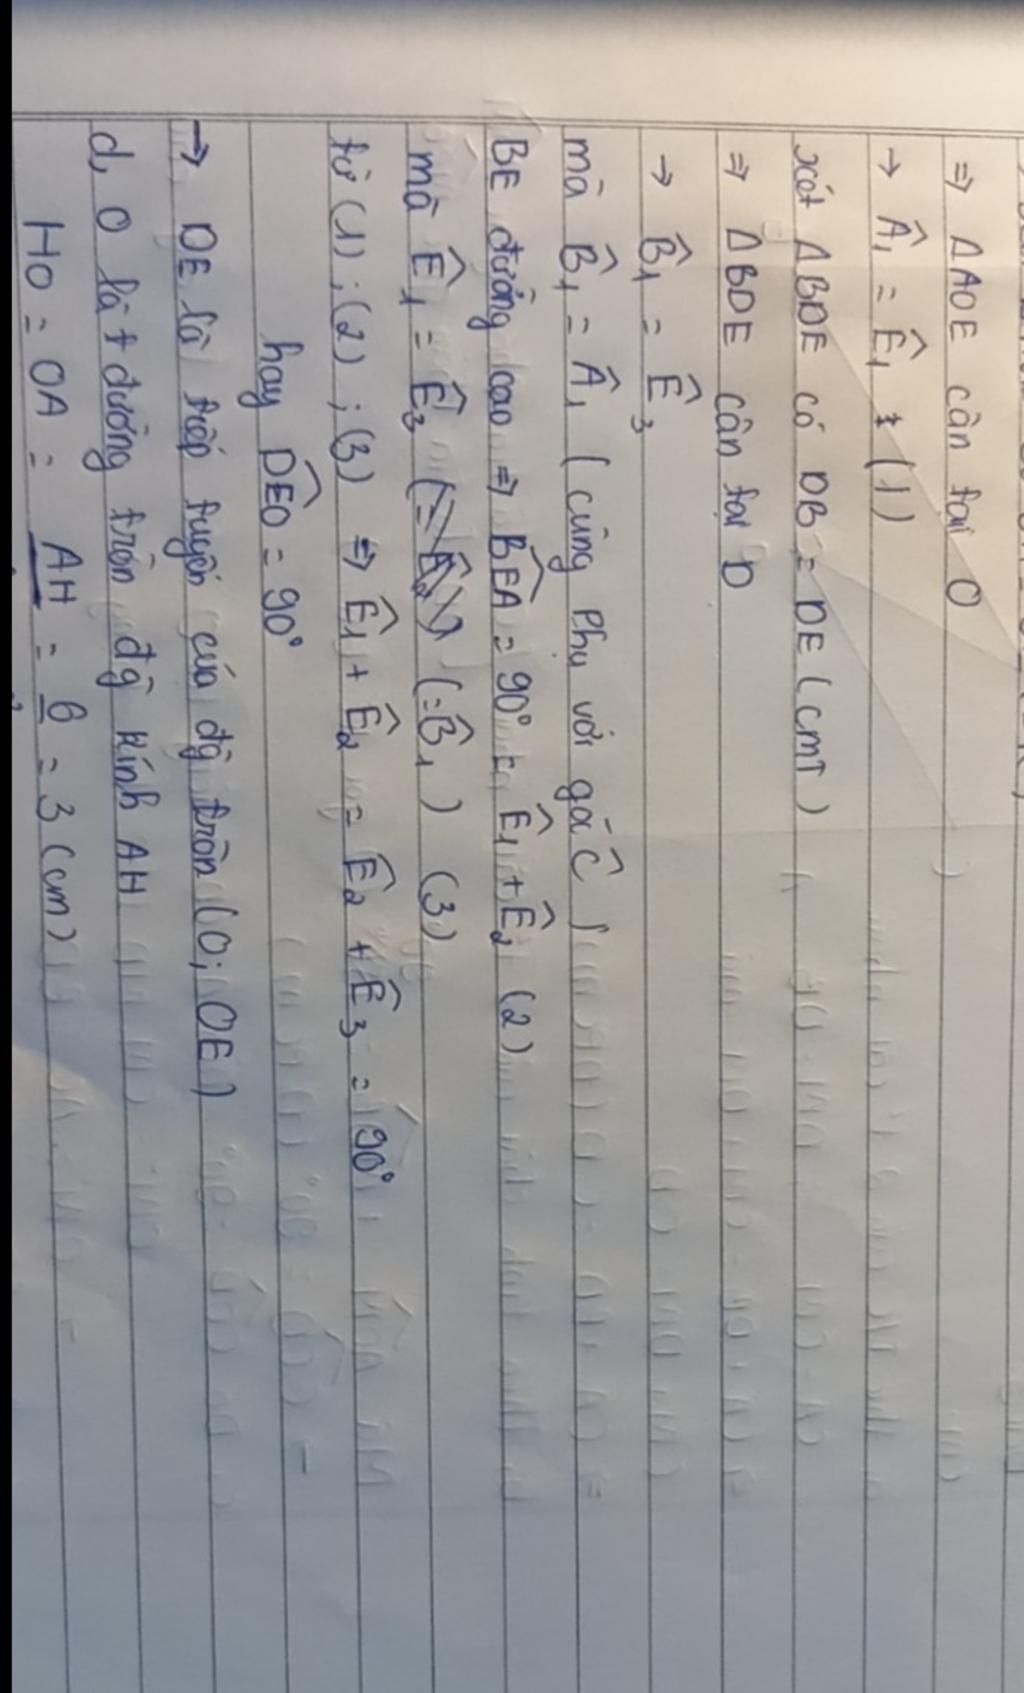 ⇒ ΔAOE cân tại O
→ Â₁ = Ê₁ (1)
xét ΔBDE có DB = DE (cmt)
⇒ ΔBDE cân tại D
→ B̂₁ = Ê₃
mà B̂₁ = Â₁ (cùng phụ với góc Ĉ)
BE đường cao ⇒ BÊA = 90° Ê₁ + Ê₂ (2)
mà Ê₁ = Ê₃ (=B̂₁) (3)
từ (1); (2); (3) ⇒ Ê₁ + Ê₂ = Ê₂ + Ê₃ = 90°
hay DÊO = 90°
→ DE là tiếp tuyến của đg tròn (O; OE)
d, O là t đường tròn đg kính AH
HO = OA = AH = 6 = 3 (cm)